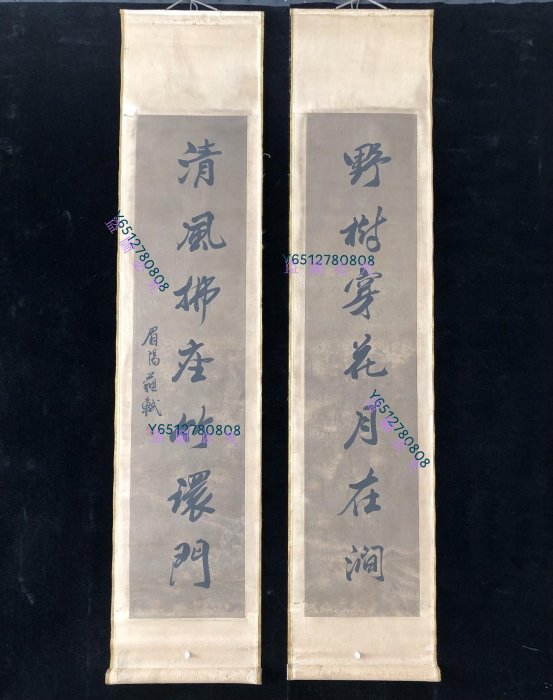 野樹穿花月在澗
清風拂座竹環門
眉陽蘓軾
Y6512780808
Y6512780808
Y6512780808
Y6512780808